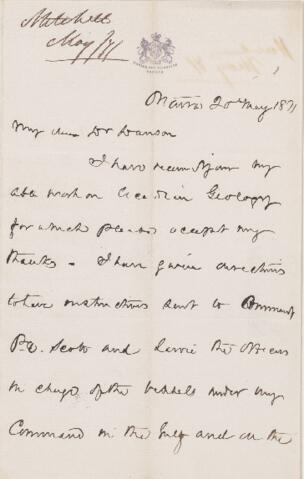 Mitchell
May/71
Ottawa 20 May 1871
My dear Dr Dawson
I have received your
able work on Acadian Geology
for which please accept my
thanks - I have given directions
to have instructions sent to
Scott and the Officers
in charge of the vessels under my
Command in the Gulf and on the